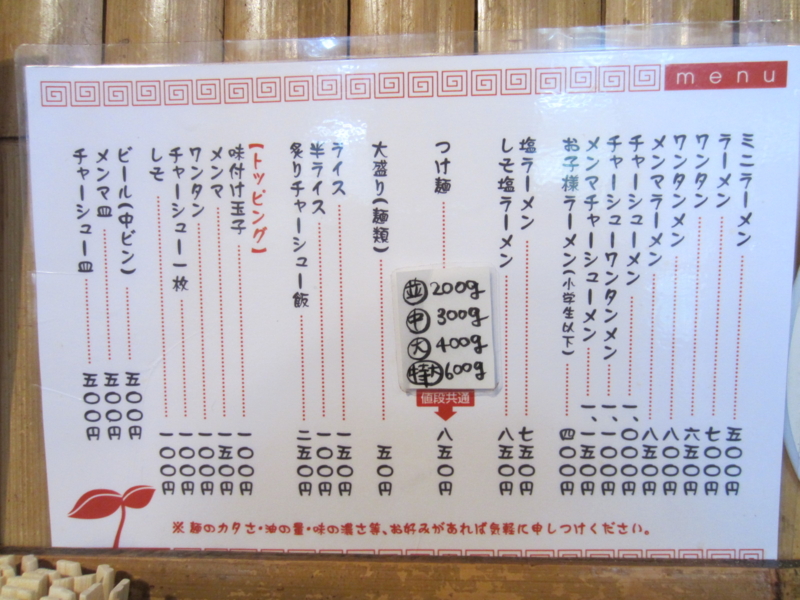 menu
ミニラーメン 五〇〇円
ラーメン 七〇〇円
ワンタン 六五〇円
ワンタンメン 八〇〇円
メンマラーメン 八五〇円
チャーシューメン 一、〇〇〇円
チャーシューワンタンメン 一、一〇〇円
メンマチャーシューメン 一、一五〇円
お子様ラーメン(小学生以下) 四〇〇円
塩ラーメン 七五〇円
しそ塩ラーメン 八五〇円
つけ麺 八五〇円
並 200g
中 300g
大 400g
特大 600g
値段共通
大盛り(麺類) 五〇円
ライス 一五〇円
半ライス 一〇〇円
炙りチャーシュー飯 二五〇円
【トッピング】
味付け玉子 一〇〇円
メンマ 一五〇円
ワンタン 一〇〇円
チャーシュー一枚 一〇〇円
しそ 一〇〇円
ビール(中ビン) 五〇〇円
メンマ皿 五〇〇円
チャーシュー皿 五〇〇円
※麺のカタさ・油の量・味の濃さ等、お好みがあれば気軽に申しつけください。